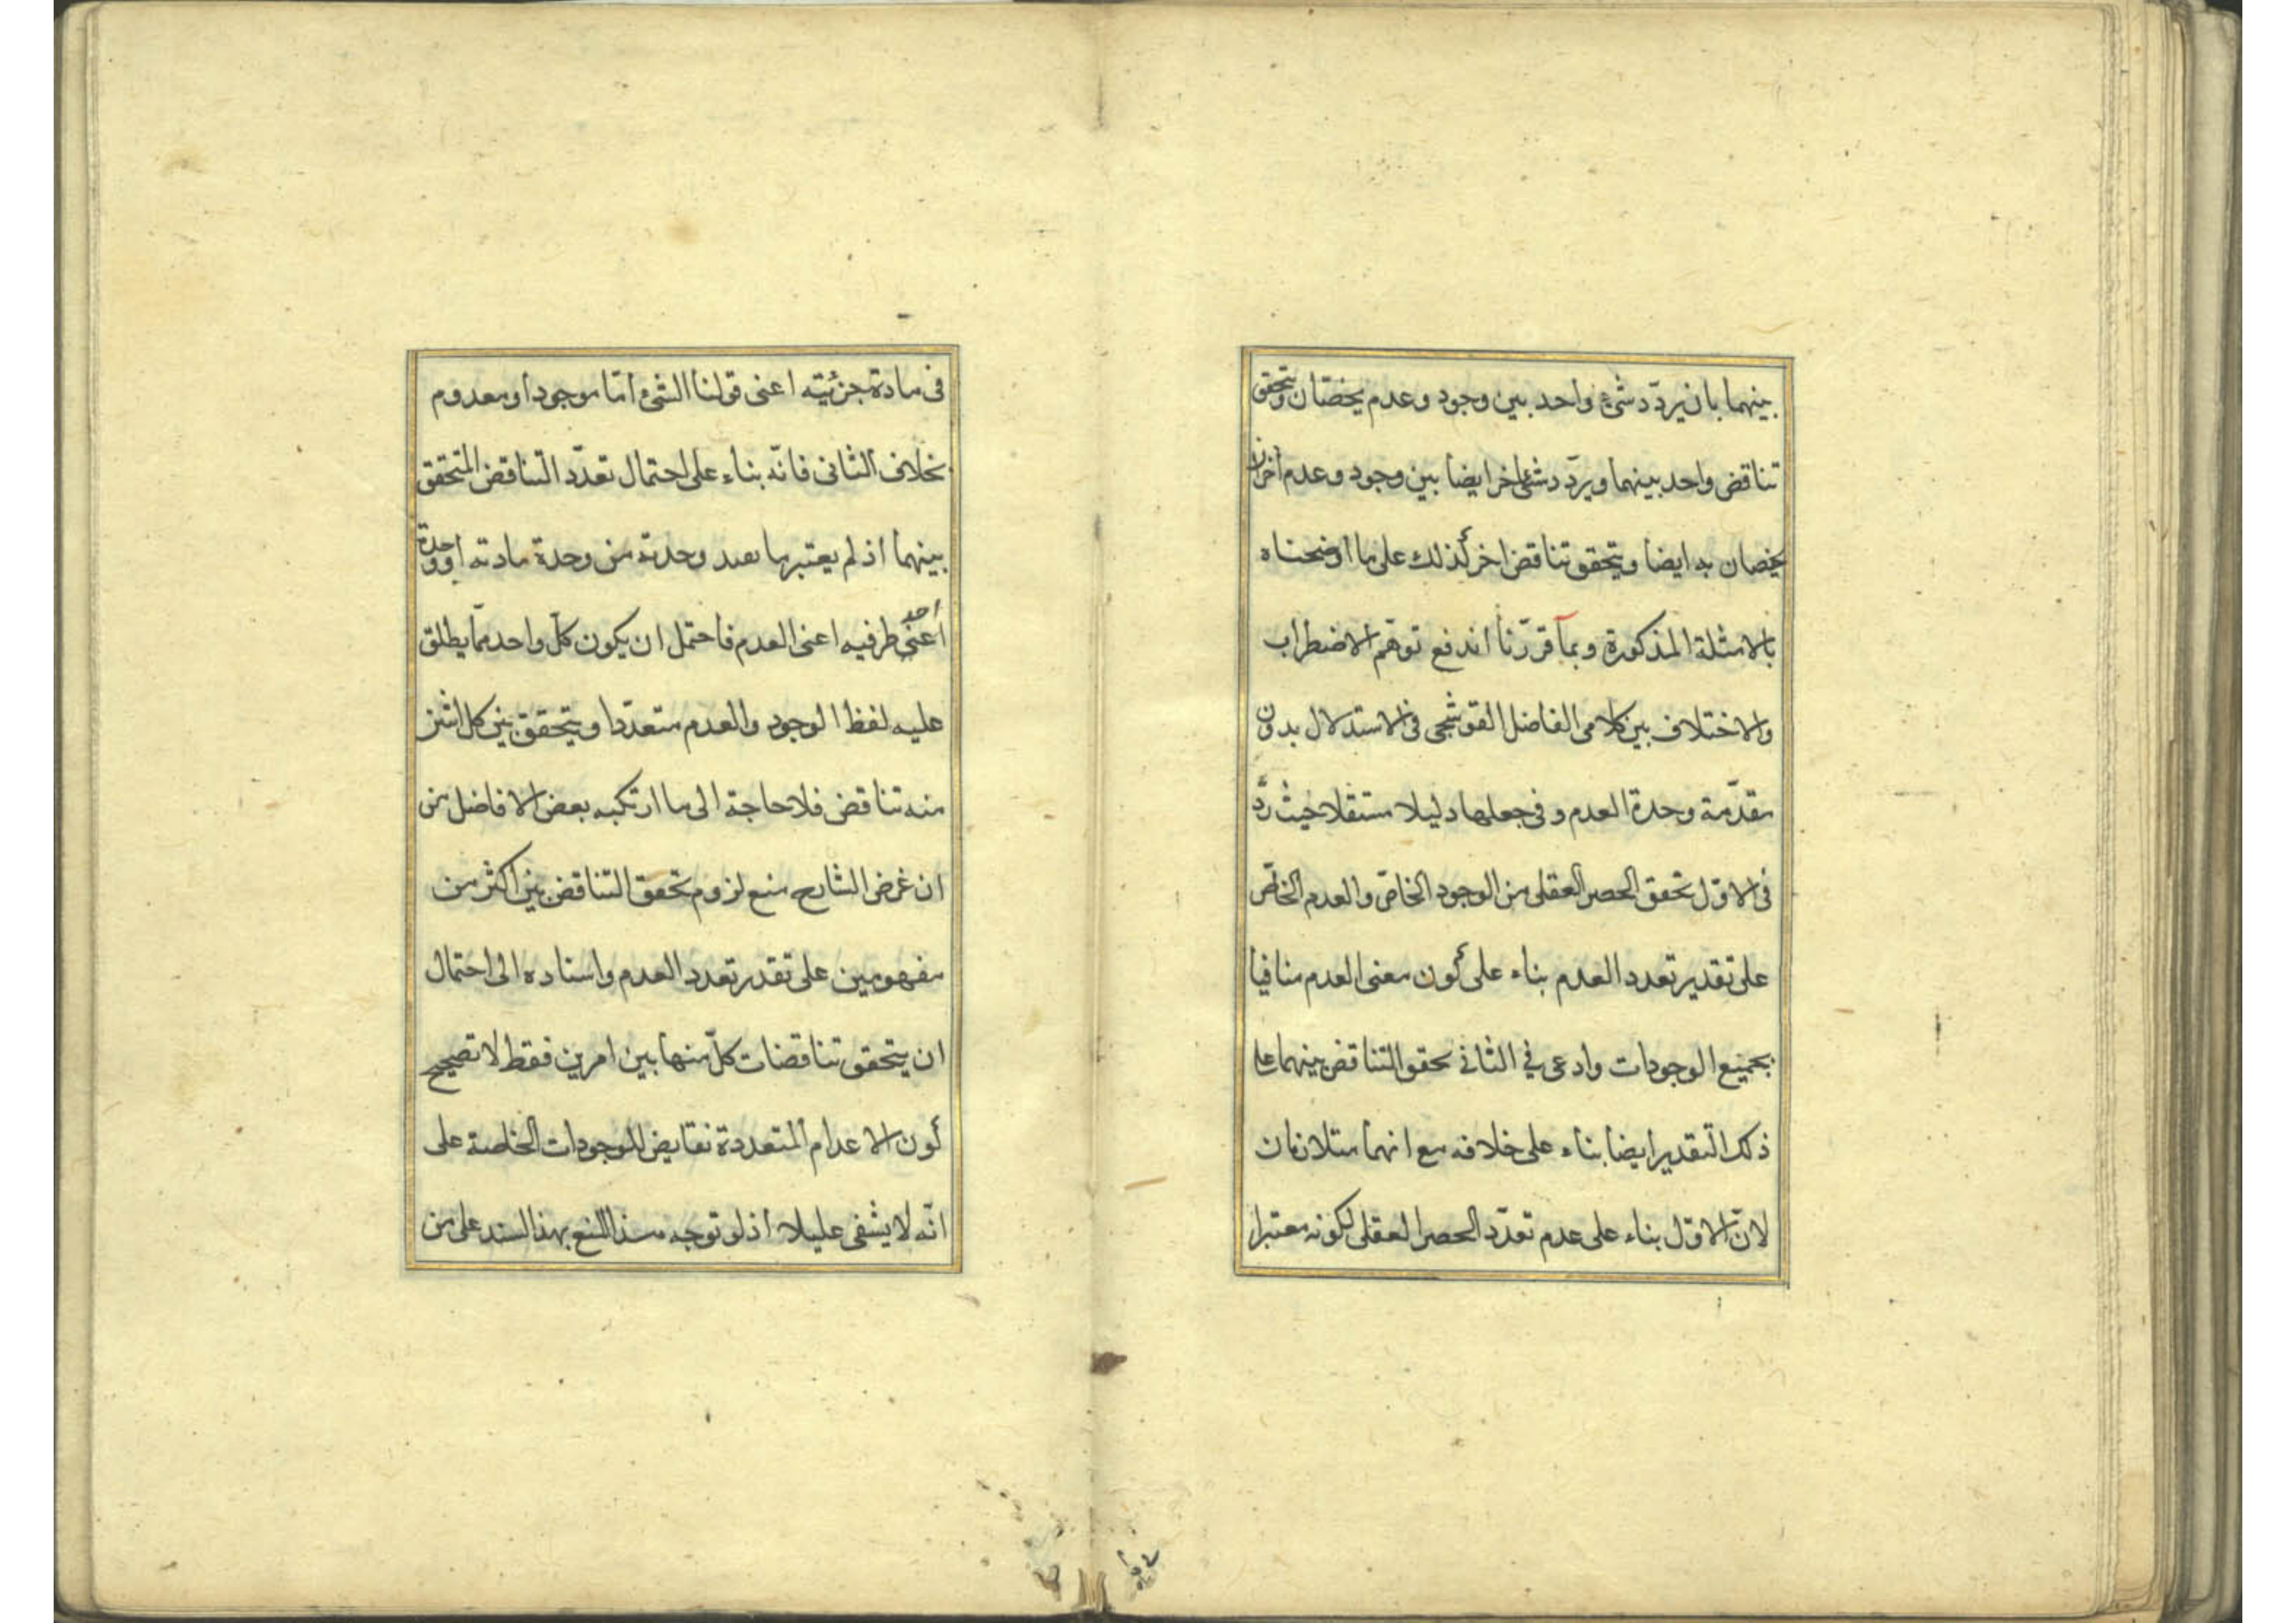 بينهما بان يردّد شئ واحد بين وجود وعدم يخصّان ويتحقق
تناقض واحد بينهما ويردّد شئ اخر ايضا بين وجود وعدم اخران
يخصان به ايضا ويتحقق تناقض اخر كذلك على ما اوضحناه
بالامثلة المذكورة وبما قرّرنا اندفع توهّم الاضطراب
والاختلاف بين كلامى الفاضل القوشجى فى الاستدلال بدون
مقدّمة وحدة العدم و فى جعلها دليلا مستقلا حيث ردّ
فى الاوّل تحقق الحصر العقلى من الوجود الخاصّ والعدم الخاصّ
على تقدير تعدد العدم بناء على كون معنى العدم منافيا
بجميع الوجودات وادعى في الثاني تحقق التناقض بينهما على
ذلك التقدير ايضا بناء على خلافه مع انهما متلازمان
لانّ الاوّل بناء على عدم تعدّد الحصر العقلى لكونه معتبرا
فى مادة جزئيته اعنى قولنا الشئ امّا موجود او معدوم
بخلاف الثانى فانّه بناء على احتمال تعدّد التناقض المتحقق
بينهما اذ لم يعتبرها بعد وحدته من وحدة مادته او وحدة
احد
اعنى طرفيه اعنى العدم فاحتمل ان يكون كلّ واحد ممّا يطلق
عليه لفظ الوجود والعدم متعدّدا ويتحقق بين كل اثنين
منه تناقض فلا حاجة الى ما ارتكبه بعض الافاضل من
ان غرض الشارح منع لزوم تحقق التناقض بين اكثر من
مفهومين على تقدير تعدد العدم واسناده الى احتمال
ان يتحقق تناقضات كلّ منها بين امرين فقط لا تصحيح
كون الاعدام المتعددة نقايض للوجودات الخاصة على
انّه لا يشفى عليلا اذ لو توجه هذا المنع بهذا السند على من